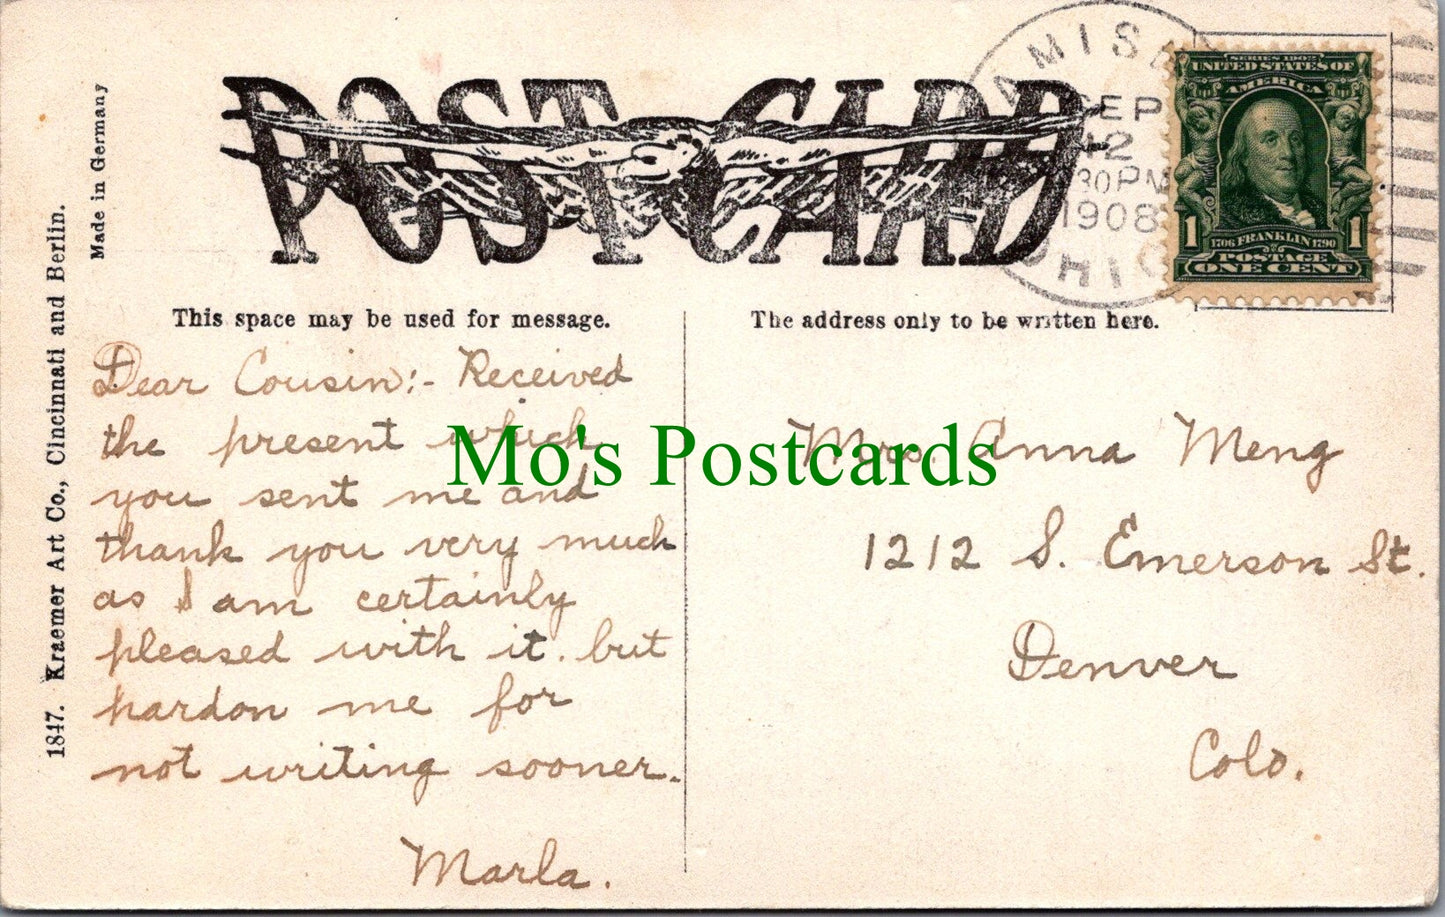 POST CARD
AMISB
SEP
12
30 PM
1908
OHIO
SERIES 1902
UNITED STATES OF
AMERICA
1706 FRANKLIN 1790
1 1
POSTAGE
ONE CENT
Made in Germany
1847. Kraemer Art Co., Cincinnati and Berlin.
This space may be used for message.
The address only to be written here.
Dear Cousin:- Received
the present which
you sent me and
thank you very much
as I am certainly
pleased with it. but
pardon me for
not writing sooner.
Marla.
Mrs. Anna Meng
1212 S. Emerson St.
Denver
Colo.
Mo's Postcards